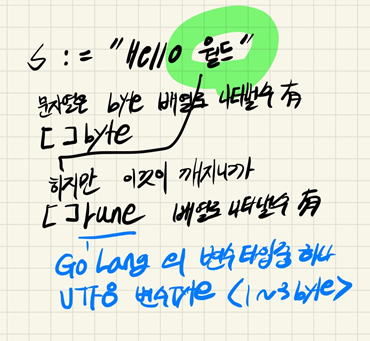 s := "Hello 월드"
문자열은 byte 배열로 나타낼수 有
[ ]byte
하지만 이것이 깨지니까
[ ]rune 배열로 나타낼수 有
Go Lang 의 변수타입중 하나
UTF8 변수타입 <1~3byte>